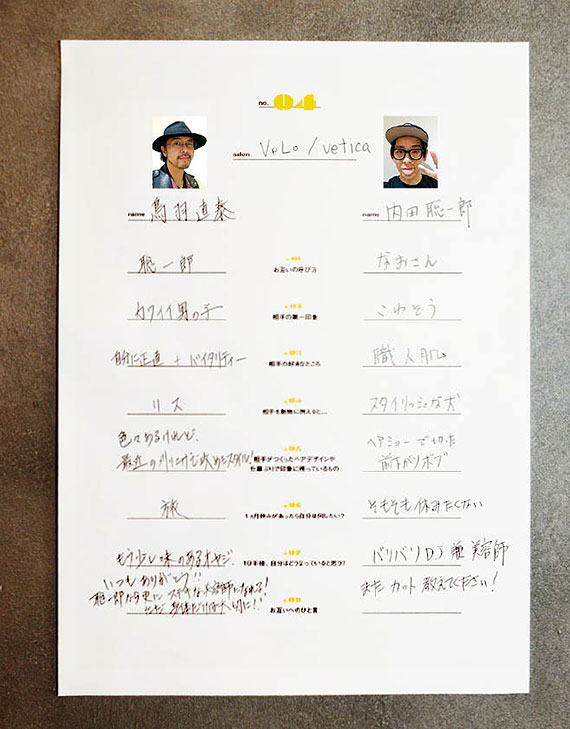 no. 04
salon VeLo / vetica
name 鳥羽直泰
name 内田聡一郎
聡一郎
お互いの呼び方
なおさん
カワイイ男の子
相手の第一印象
こわそう
自分に正直 + バイタリティー
相手の好きなところ
職人肌
リス
相手を動物に例えると…
スタイリッシュな犬
色々あるけれど、
最近のメリハリで攻めるスタイル!
相手がつくったヘアデザインや
仕事ぶりで印象に残っているもの
ヘアショーで切った
前下がりボブ
旅
1ヵ月休みがあったら自分は何したい?
そもそも休みたくない
もう少し味のあるオヤジ。
10年後、自分はどうなっていると思う?
バリバリDJ兼美容師
いつもありがとう!!
聡一郎なら更にステキな美容師になれる!
ただ身体だけは大切に!
お互いへのひと言
またカット教えてください!